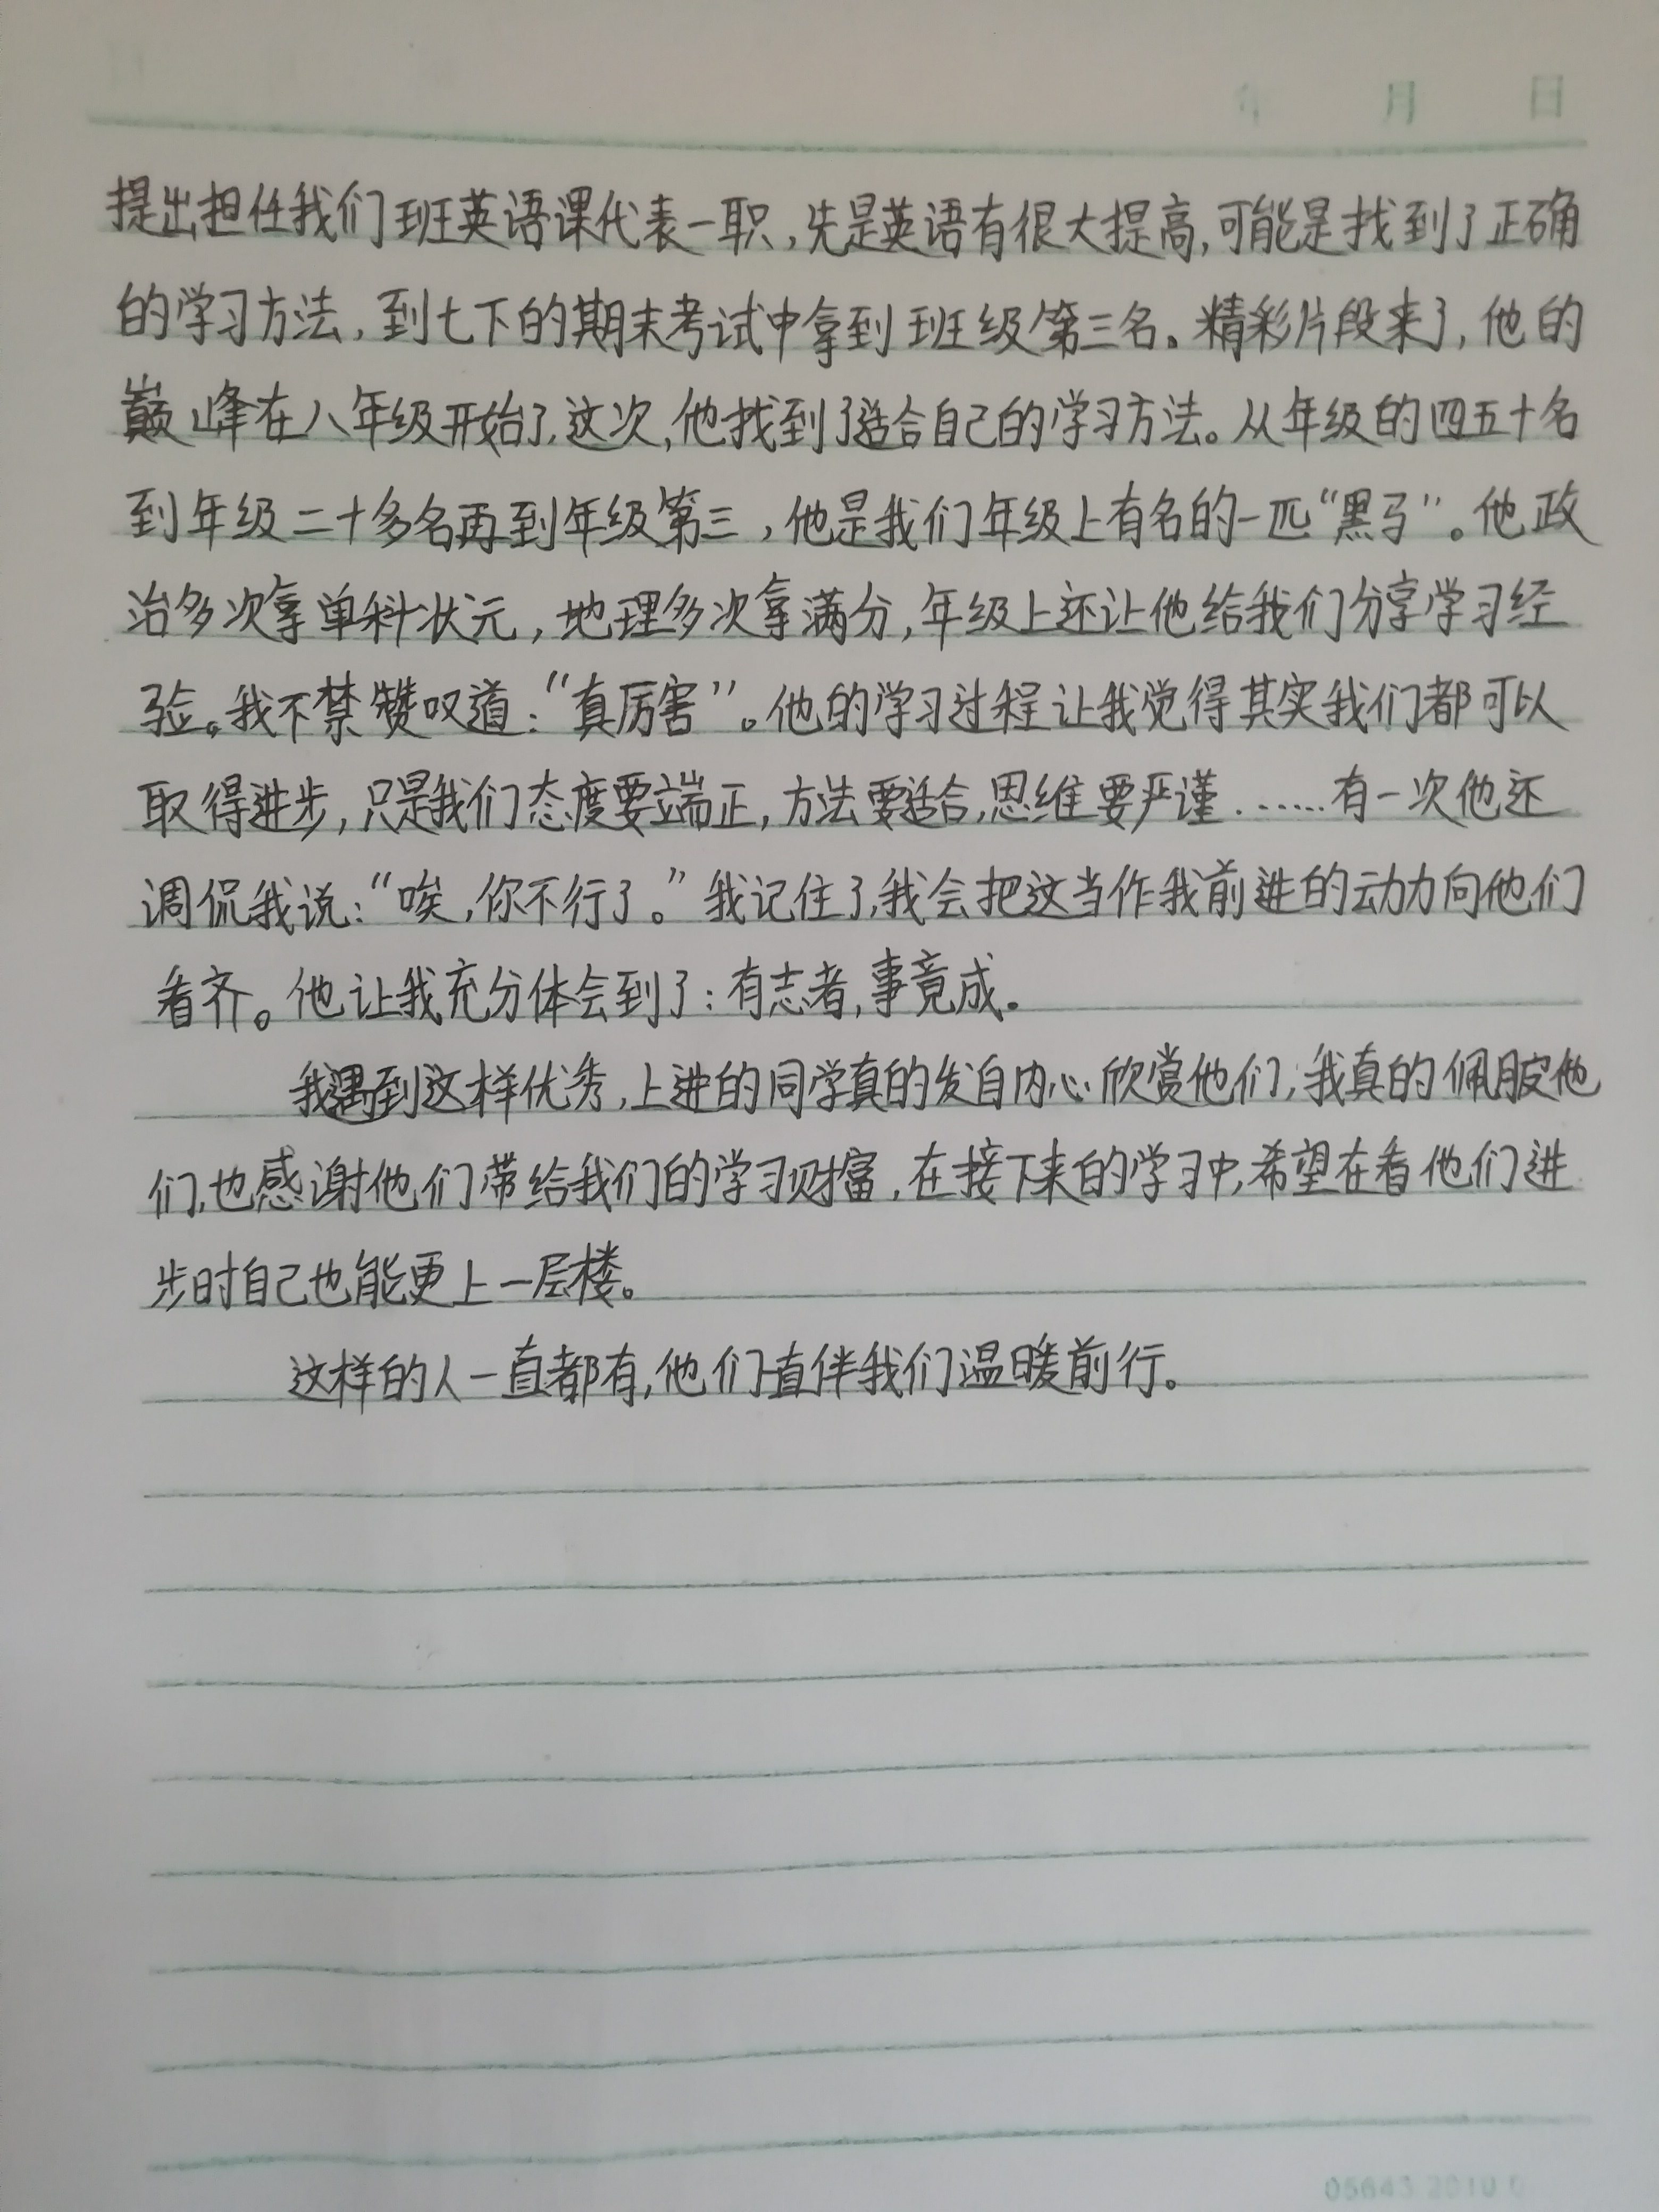 年 月 日
提出担任我们班英语课代表一职,先是英语有很大提高,可能是找到了正确
的学习方法,到七下的期末考试中拿到班级第三名。精彩片段来了,他的
巅峰在八年级开始了,这次,他找到了适合自己的学习方法。从年级的四五十名
到年级二十多名再到年级第三,他是我们年级上有名的一匹“黑马”。他政
治多次拿单科状元,地理多次拿满分,年级上还让他给我们分享学习经
验。我不禁赞叹道:“真厉害”。他的学习过程让我觉得其实我们都可以
取得进步,只是我们态度要端正,方法要适合,思维要严谨.……有一次他还
调侃我说:“唉,你不行了。”我记住了,我会把这当作我前进的动力向他们
看齐。他让我充分体会到了:有志者,事竟成。
我遇到这样优秀,上进的同学真的发自内心欣赏他们,我真的佩服他
们,也感谢他们带给我们的学习财富,在接下来的学习中,希望在看他们进
步时自己也能更上一层楼。
这样的人一直都有,他们一直伴我们温暖前行。